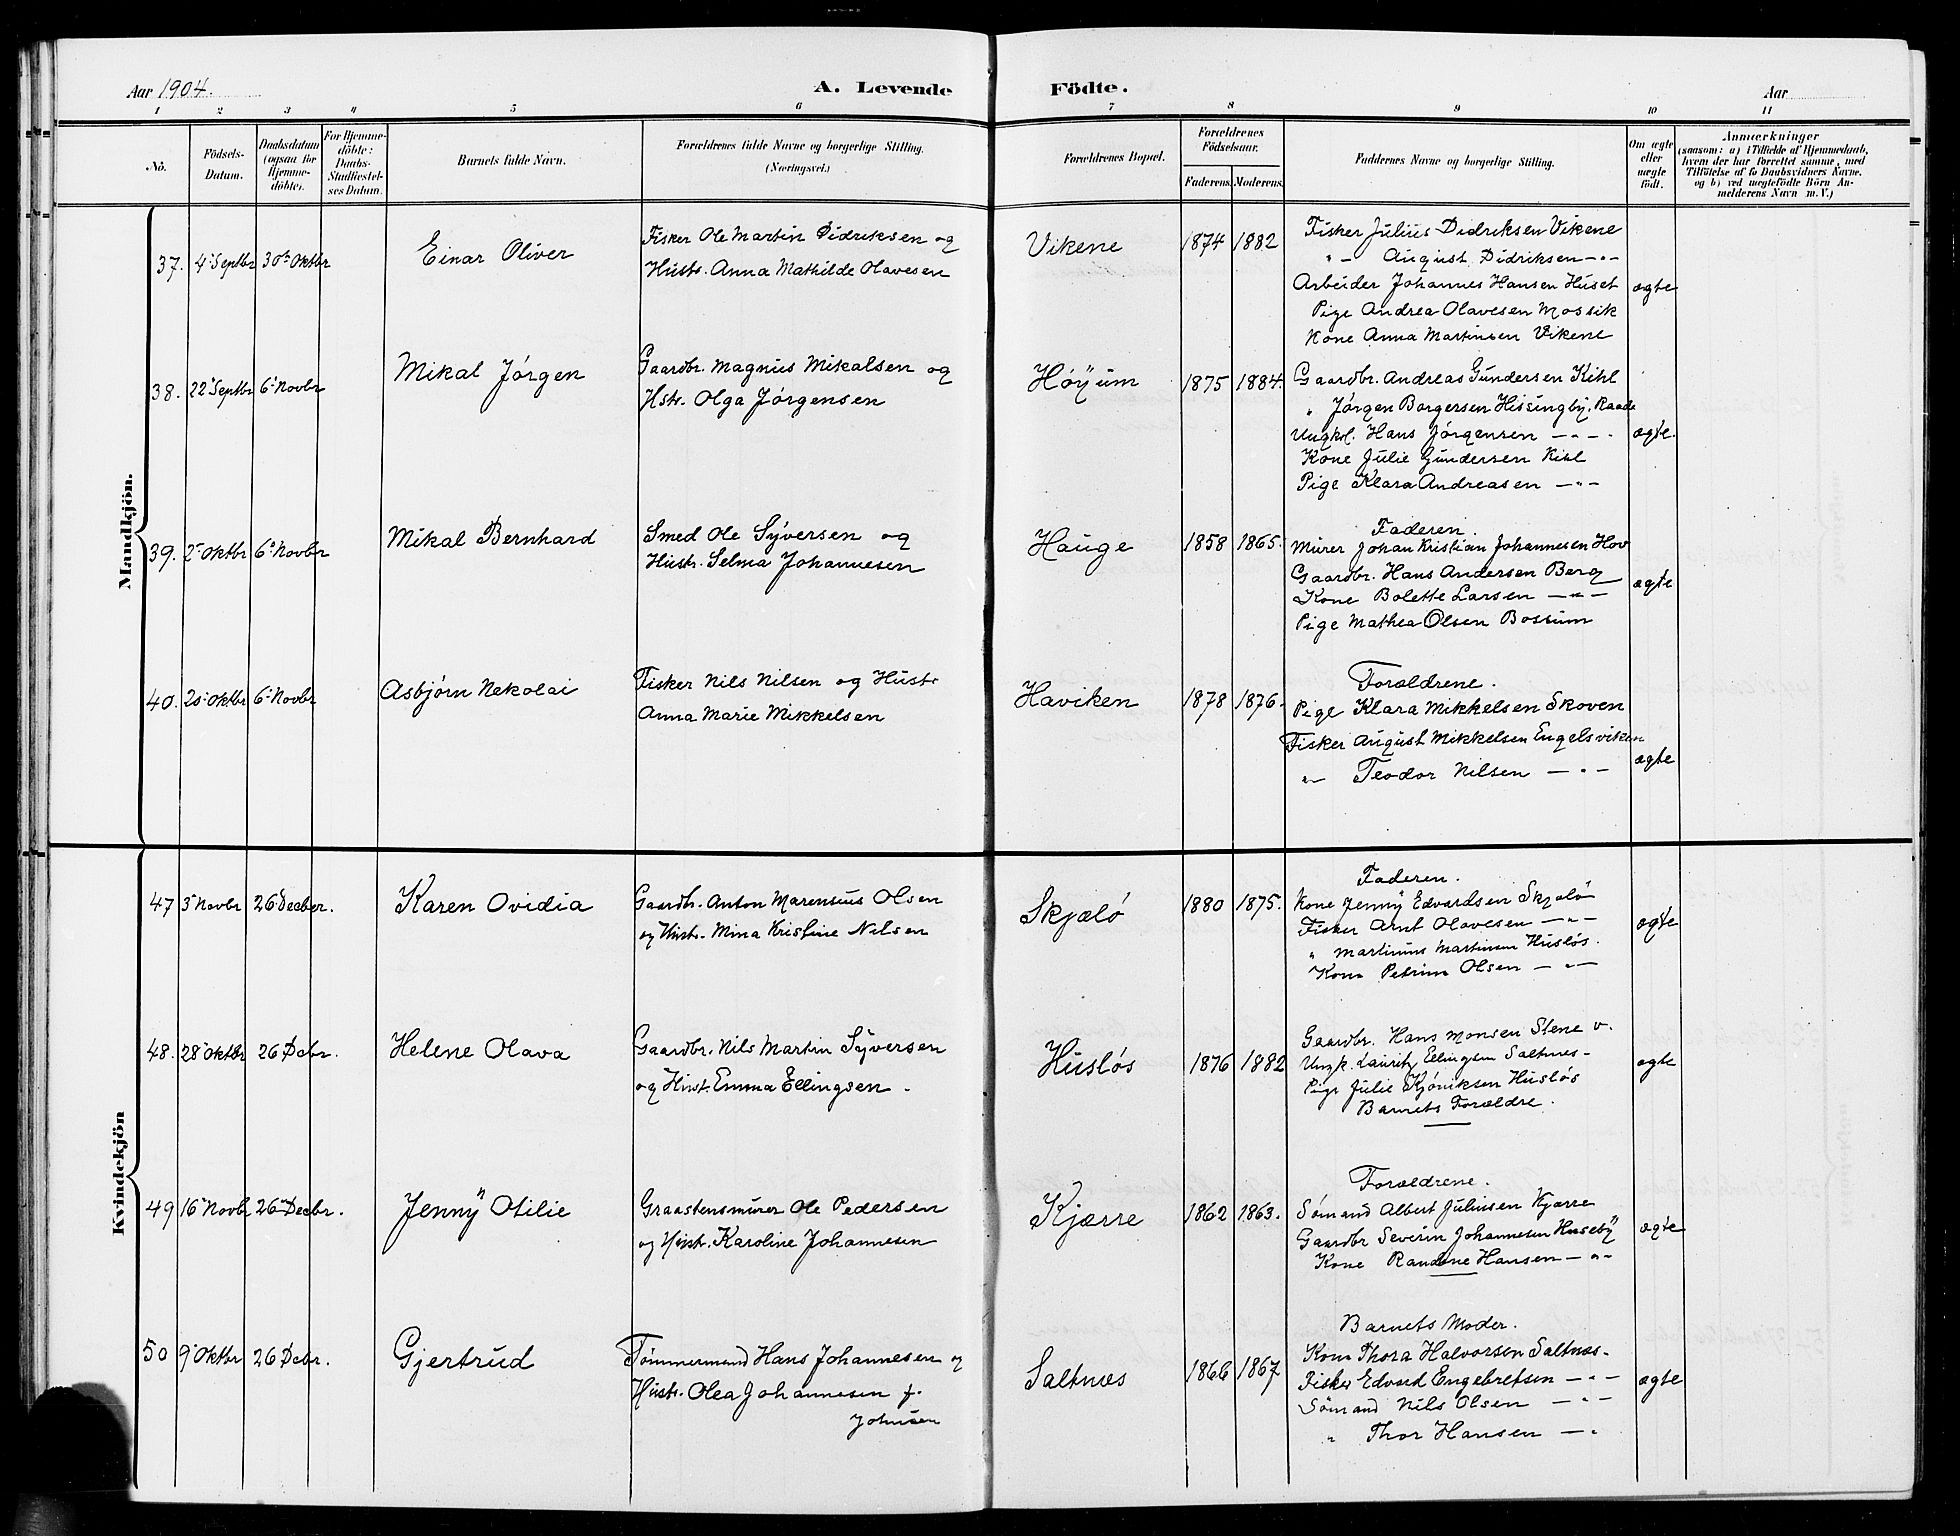 Aar 1904. A. Levende Födte. Aar
1 2 3 4 5 6 7 8 9 10 11
Nô. Födsels-Datum. Daabsdatum (ogsaa for Hjemme-döbte). For Hjemme-döbte: Daabs-Stadfæstel-ses Datum. Barnets fulde Navn. Forældrenes fulde Navne og borgerlige Stilling. (Næringsvei.) Forældrenes Bopæl. Forældrenes Födselsaar. Faderens. Moderens. Faddernes Navne og borgerlige Stilling. Om ægte eller uægte födt. Anmærkninger (saasom: a) i Tilfælde af Hjemmedaab, hvem der har forrettet samme, med Tilföielse af to Daabsvidners Navne, og b) ved uægtefödte Börn An-melderens Navn m. V.)
Mandkjön.
37. 4' Septbr 30te Oktbr Einar Oliver
Fisker Ole Martin Didriksen og
Hustr. Anna Mathilde Olavesen
Vikene 1874 1882
Fisker Julius Didriksen Vikene
" – August Didriksen – " –
Arbeider Johannes Hansen Huset
Pige Andrea Olavesen Mossik
Kone Anna Martinsen Vikene
ægte
38. 22' Septbr 6' Novbr Mikal Jørgen
Gaardbr. Magnus Mikalsen og
Hstr. Olga Jørgensen
Høÿum 1875 1884.
Gaardbr. Andreas Gundersen Kihl
" Jørgen Borgersen Hissingby, Raade
Ungkl. Hans Jørgensen – " –
Kone Julie Gundersen Kihl
Pige Klara Andreasen – " –
ægte.
39. 2' Oktbr 6' Novbr Mikal Bernhard
Smed Ole Syversen og
Hustr. Selma Johannesen
Hauge 1858 1865.
Faderen.
Murer Johan Kristian Johannesen Hov
Gaardbr. Hans Andersen Berg
Kone Bolette Larsen – " –
Pige Mathea Olsen Bossum
ægte
40. Oktbr 6' Novbr Asbjørn Nekolai
Fisker Nils Nilsen og Hustr
Anna Marie Mikkelsen
Haviken 1878 1876.
Forældrene.
Pige Klara Mikkelsen Skoven
Fisker August Mikkelsen Engelsviken
" Teodor Nilsen – " –
ægte
Kvindekjön
47 3' Novbr 26' Decber. Karen Ovidia
Gaardbr. Anton Marensius Olsen
og Hustr. Mina Kristine Nilsen
Skjælø 1880 1875.
Faderen.
Kone Jenny Edvardsen Skjælø
Fisker Arnt Olavesen – " –
" Martinus Martinsen Husløs.
Kone Petrine Olsen – " –
ægte
48. 28' Oktbr 26' Decbr. Helene Olava
Gaardbr. Nils Martin Syversen
og Hustr. Emma Ellingsen.
Husløs 1876 1882
Gaardbr. Hans Monsen Stene v.
Ungk. Lauritz Ellingsen Saltnes –
Pige Julie Kjøniksen Husløs
Barnets Forældre.
ægte
49 16' Novbr 26' Decbr. Jennÿ Otilie
Graastensmurer Ole Pedersen
og Hustr. Karoline Johannesen
Kjærre 1862 1863.
Forældrene.
Sømand Albert Juliusen Kjærre
Gaardbr Severin Johannesen Husebÿ
Kone Randine Hansen – " –
ægte
50 9' Oktbr 26' Decbr. Gjertrud
Tømmermand Hans Johannesen og
Hustr. Olea Johannesen f.
Johnsen
Saltnæs 1866 1867
Barnets Moder.
Kone Thora Halvorsen Saltnæs.
Fisker Edvard Engebretsen – " –
Sømand Nils Olsen – " –
" Thor Hansen – "
ægte